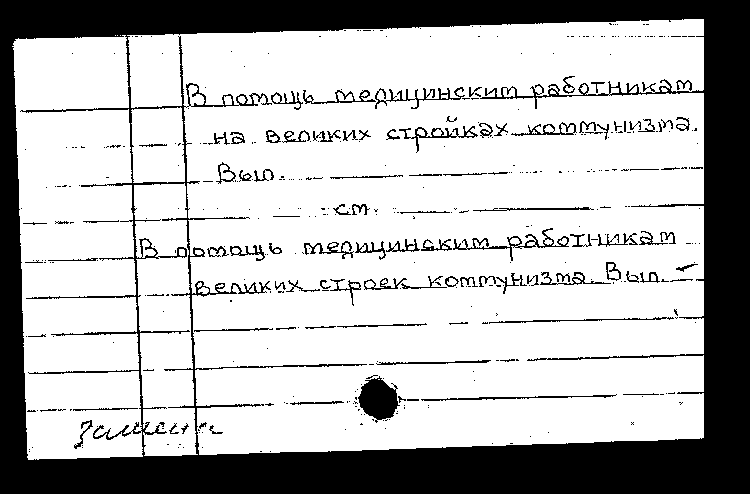 В помощь медицинским работникам
на великих стройках коммунизма.
Вып.
см.
В помощь медицинским работникам
великих строек коммунизма. Вып. –
замена